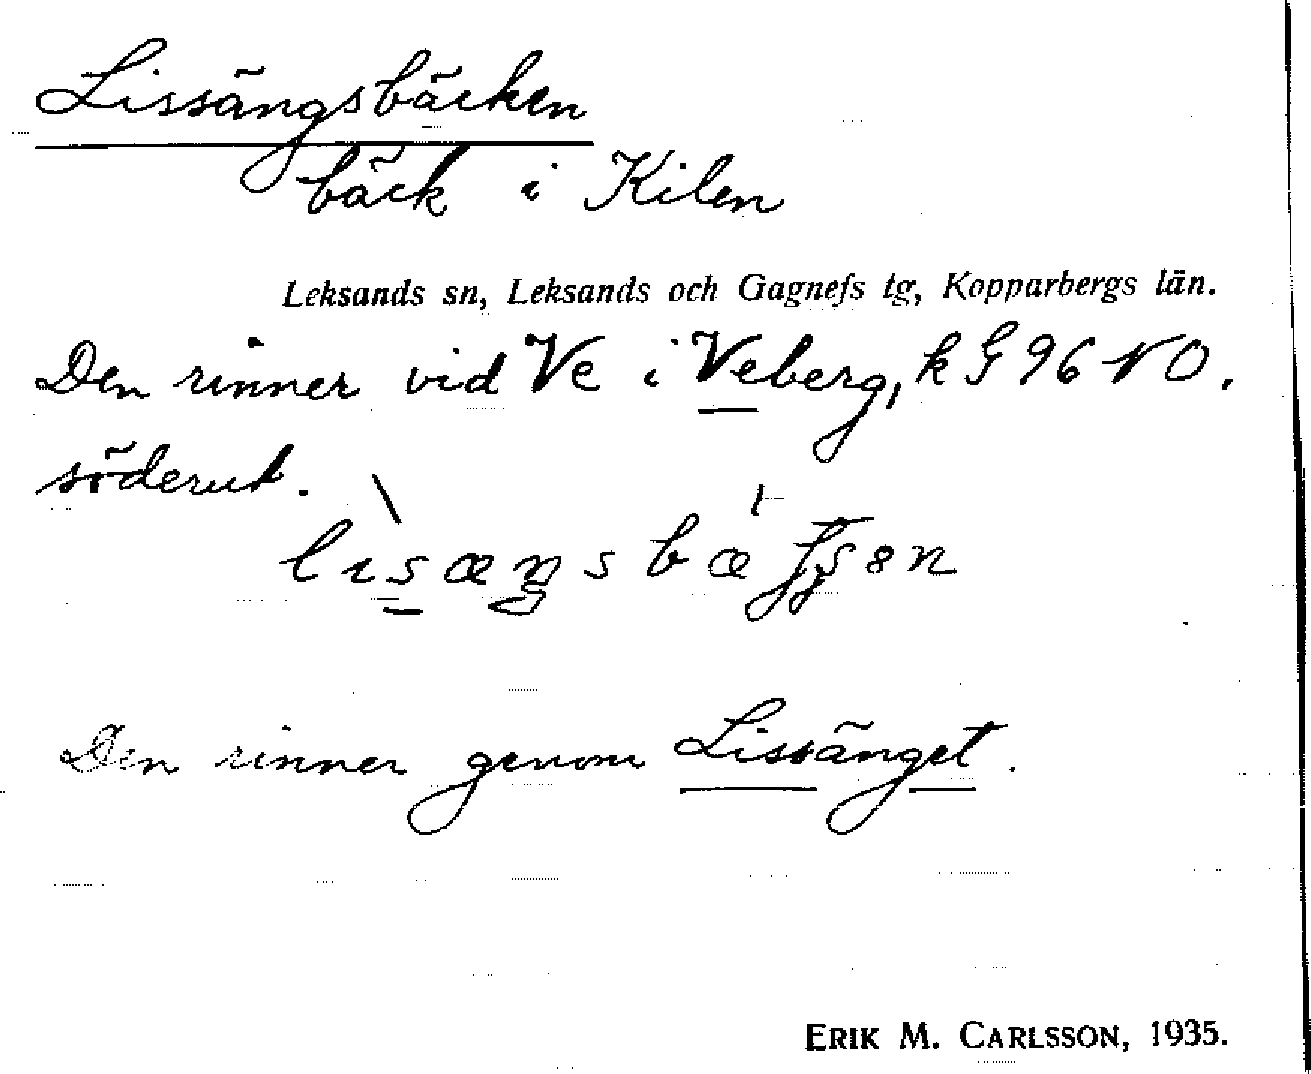 Lissängsbäcken
bäck i Kilen
Leksands sn, Leksands och Gagnefs tg, Kopparbergs län.
Den rinner vid Ve i Veberg, k G 96 NO.
söderut.
Den rinner genom Lissänget.
ERIK M. CARLSSON, 1935.